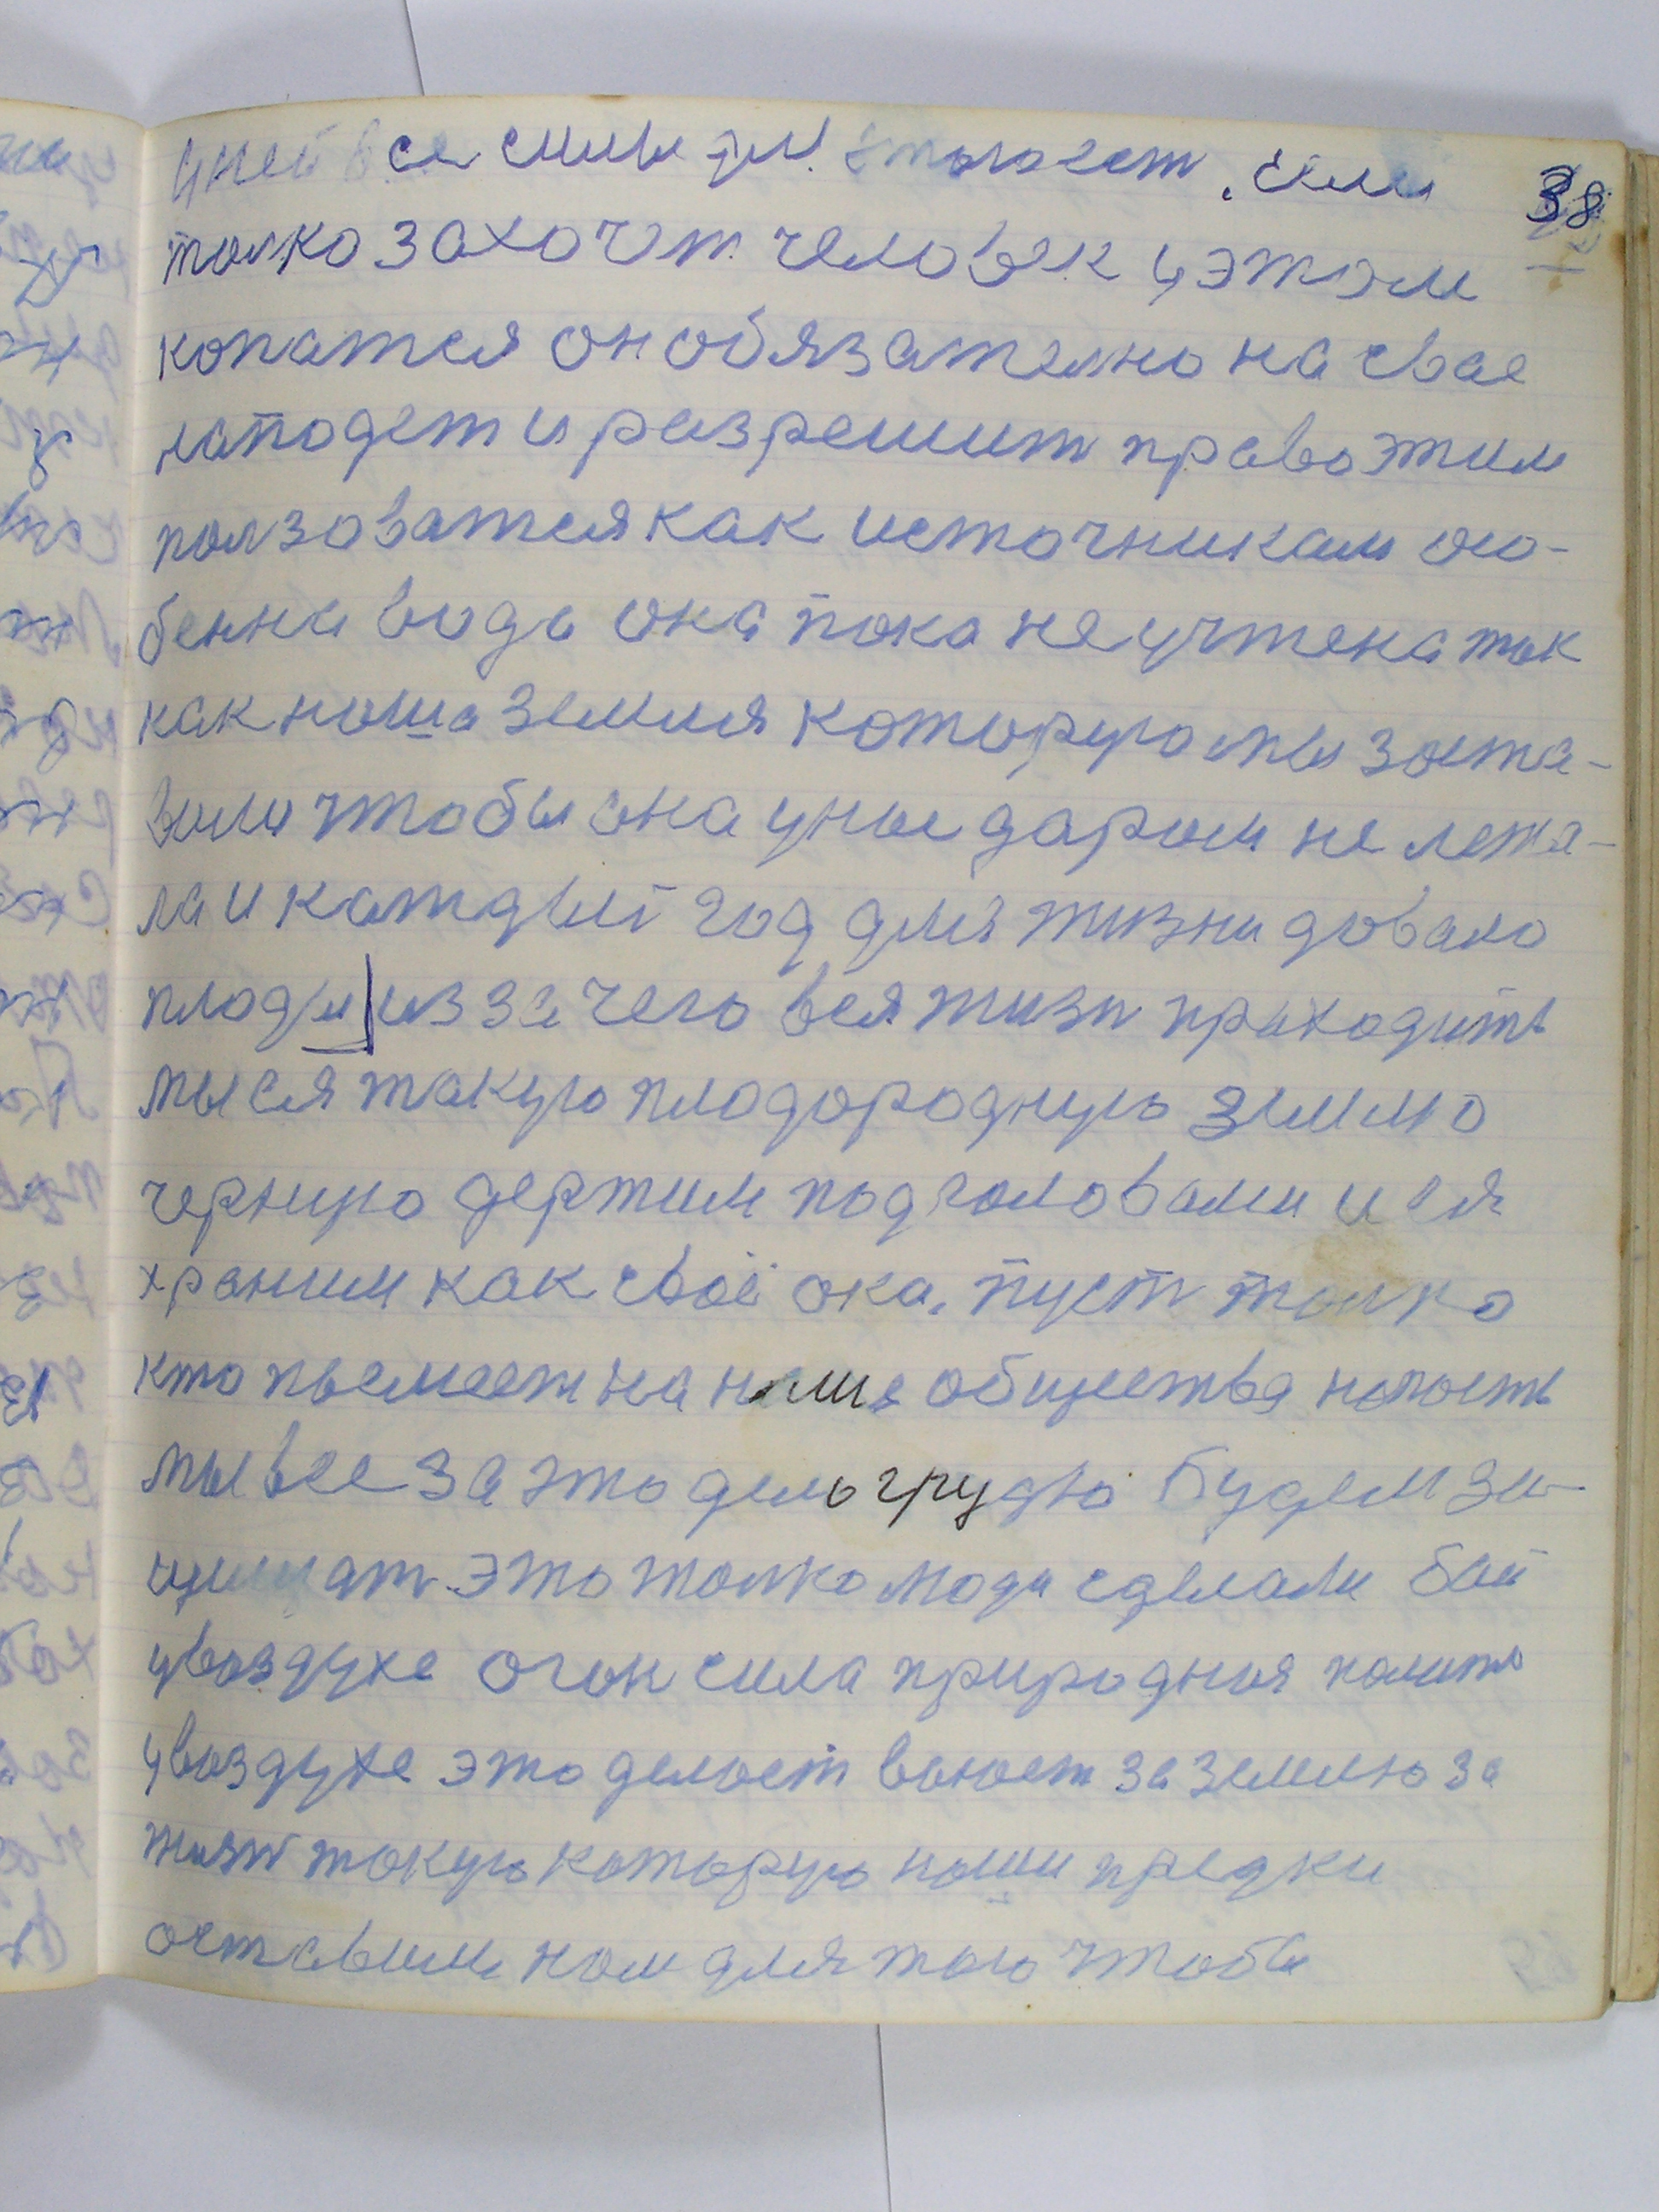 у ней вся сила для этого есть. Если
38
толко захочет человек у этом
копатся он обязателно на свае
нападет и разрешит право этим
ползоватся как источникам осо-
бенна вода она пока не учтена так
как наша земля которую мы заста-
вили чтобы она у нас даром не лежа-
ла и каждый год для жизни довала
плоды из за чего вся жизн праходить
мы ся такую плодородную землю
черную держим под головами и ея
храним как своё ока. пуст толко
кто посмеет на наше общества напасть
мы все за это дело грудю будем за-
щищат это толко люди сделали бой
увоздухе огон сила природная палить
увоздухе это делает воюет за землю за
жизн такую которую наши предки
оставили нам для того чтобы